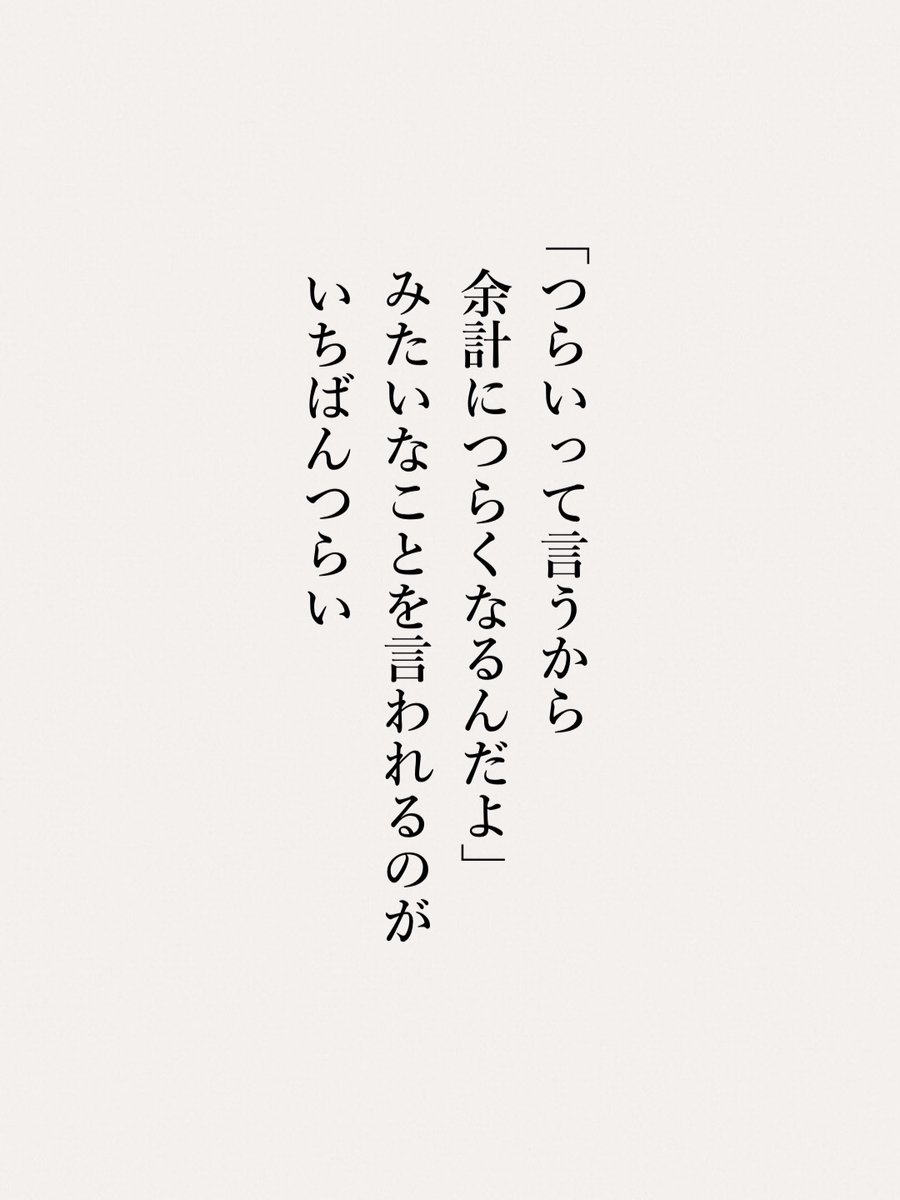 「つらいって言うから
余計につらくなるんだよ」
みたいなことを言われるのが
いちばんつらい